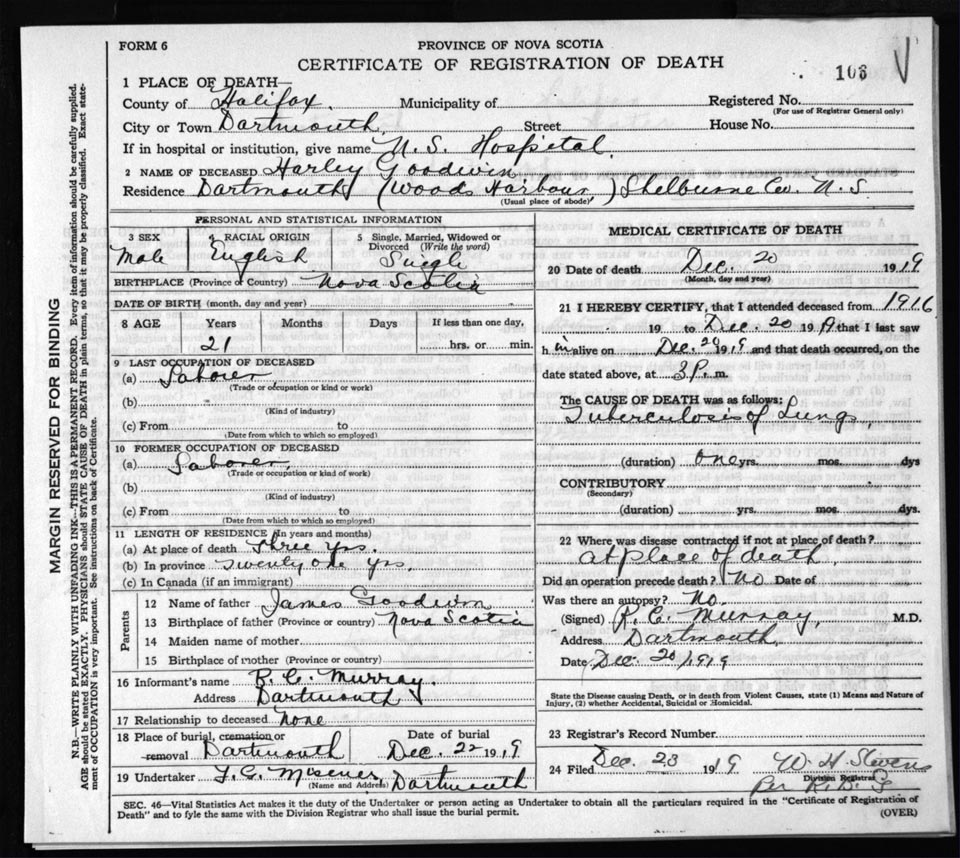 FORM 6
PROVINCE OF NOVA SCOTIA
CERTIFICATE OF REGISTRATION OF DEATH
106
1 PLACE OF DEATH—
County of Halifax Municipality of Registered No.
(For use of Registrar General only)
City or Town Dartmouth, Street House No.
If in hospital or institution, give name N.S. Hospital.
2 NAME OF DECEASED Harley Goodwin
Residence Dartmouth (Woods Harbour) Shelburne Co. N.S
(Usual place of abode)
PERSONAL AND STATISTICAL INFORMATION
3 SEX 4 RACIAL ORIGIN 5 Single, Married, Widowed or Divorced (Write the word)
Male English Single
BIRTHPLACE (Province or Country) Nova Scotia
DATE OF BIRTH (month, day and year)
8 AGE Years Months Days If less than one day,
21 hrs. or min.
9 LAST OCCUPATION OF DECEASED
(a) Laborer
(Trade or occupation or kind or work)
(b)
(Kind of industry)
(c) From to
(Date from which to which so employed)
10 FORMER OCCUPATION OF DECEASED
(a) Laborer,
(Trade or occupation or kind of work)
(b)
(Kind of industry)
(c) From to
(Date from which to which so employed)
11 LENGTH OF RESIDENCE (In years and months)
(a) At place of death Three Yrs.
(b) In province Twenty one yrs.
(c) In Canada (if an immigrant)
Parents
12 Name of father James Goodwin
13 Birthplace of father (Province or country) Nova Scotia
14 Maiden name of mother
15 Birthplace of mother (Province or country)
16 Informant's name R. C. Murray.
Address Dartmouth
17 Relationship to deceased None
18 Place of burial, cremation or removal Dartmouth Date of burial Dec. 22 1919
19 Undertaker Dartmouth
(Name and Address)
MEDICAL CERTIFICATE OF DEATH
20 Date of death Dec. 20 1919
(Month, day and year)
21 I HEREBY CERTIFY, that I attended deceased from 1916
19 to Dec. 20 19 19 that I last saw
h im alive on Dec. 20 1919 and that death occurred, on the
date stated above, at 3 P. m.
The CAUSE OF DEATH was as follows:
Tuberculosis of Lungs,
(duration) One yrs. mos. dys
CONTRIBUTORY
(Secondary)
(duration) yrs. mos. dys.
22 Where was disease contracted if not at place of death?
at place of death
Did an operation precede death? No Date of
Was there an autopsy? No.
(Signed) R. C. Murray, M.D.
Address Dartmouth,
Date Dec. 20/1919
State the Disease causing Death, or in death from Violent Causes, state (1) Means and Nature of
Injury, (2) whether Accidental, Suicidal or Homicidal.
23 Registrar's Record Number
24 Filed Dec. 23 1919 W. H. Stevens
Division Registrar
SEC. 46—Vital Statistics Act makes it the duty of the Undertaker or person acting as Undertaker to obtain all the particulars required in the "Certificate of Registration of
Death" and to fyle the same with the Division Registrar who shall issue the burial permit.
(OVER)
MARGIN RESERVED FOR BINDING
N.B.—WRITE PLAINLY WITH UNFADING INK—THIS IS A PERMANENT RECORD. Every item of information should be carefully supplied.
AGE should be stated EXACTLY. PHYSICIANS should STATE CAUSE OF DEATH in plain terms, so that it may be properly classified. Exact state-
ment of OCCUPATION is very important. See instructions on back of Certificate.